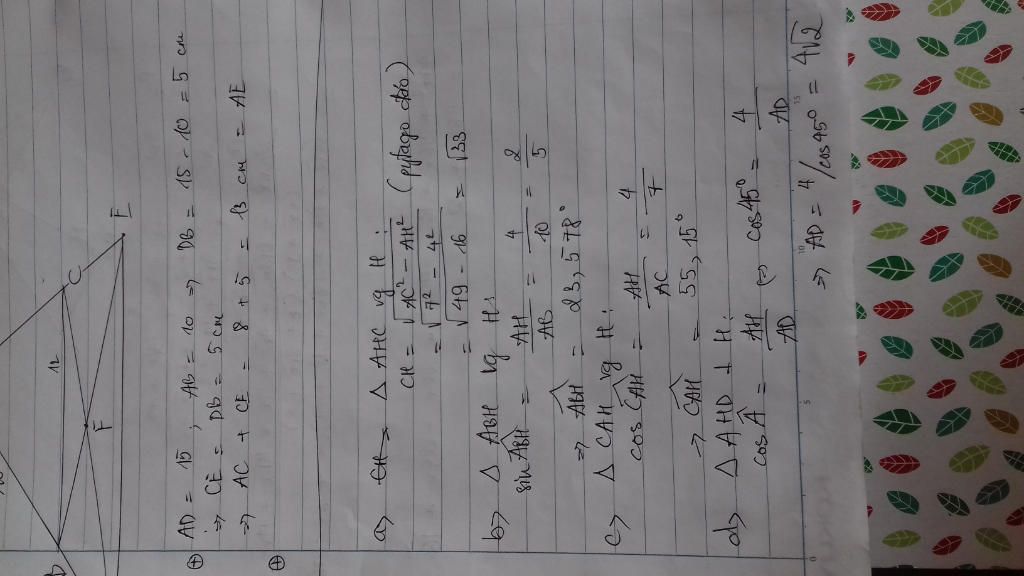 B
12
C
F
E
⊕ AD = 15 ; AB = 10 => DB = 15 - 10 = 5 cm
=> CE = DB = 5 cm
=> AC + CE = 8 + 5 = 13 cm = AE
⊕
a> CH = △ AHC vg H :
CH = √AC² - AH² (pytago đảo)
= √7² - 4²
= √49 - 16 = √33
b> △ ABH vg H :
sin ABH = AH/AB = 4/10 = 2/5
=> ABH = 23,578°
c> △ CAH vg H :
cos CAH = AH/AC = 4/7
=> CAH = 55,15°
d> △ AHD ⊥ H :
cos A = AH/AD <=> cos 45° = 4/AD
=> AD = 4/cos 45° = 4√2
0 5 10 15